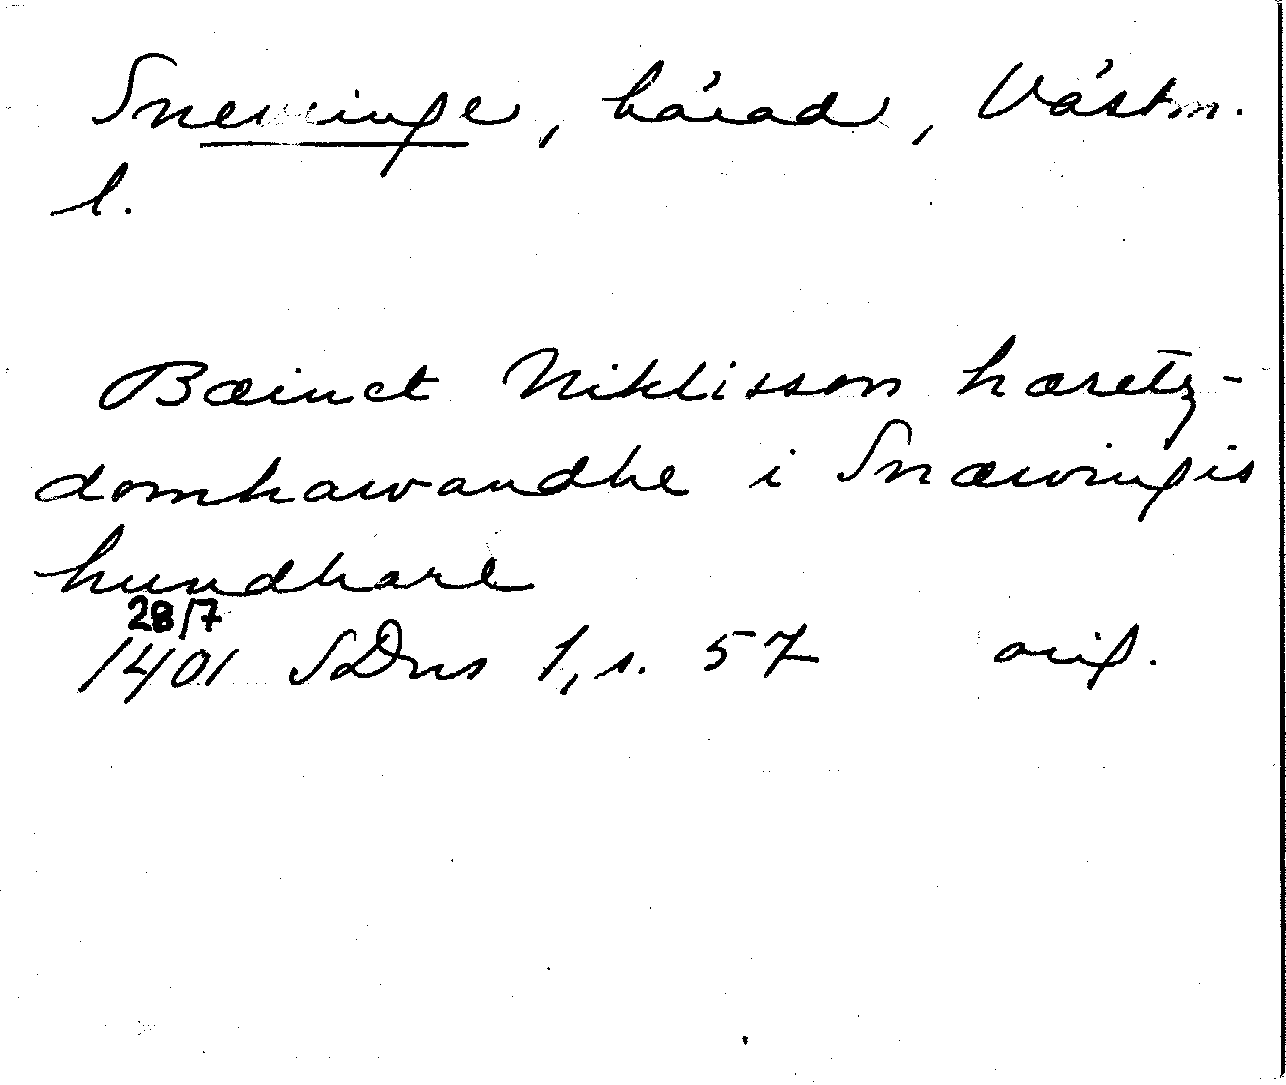 Snevringe, härad, Västm.
l.
Bæinct Niklisson hæretz-
domhawandhe i Snæwringis
hundhare
28/7
1401 SDns 1, s. 57 orig.